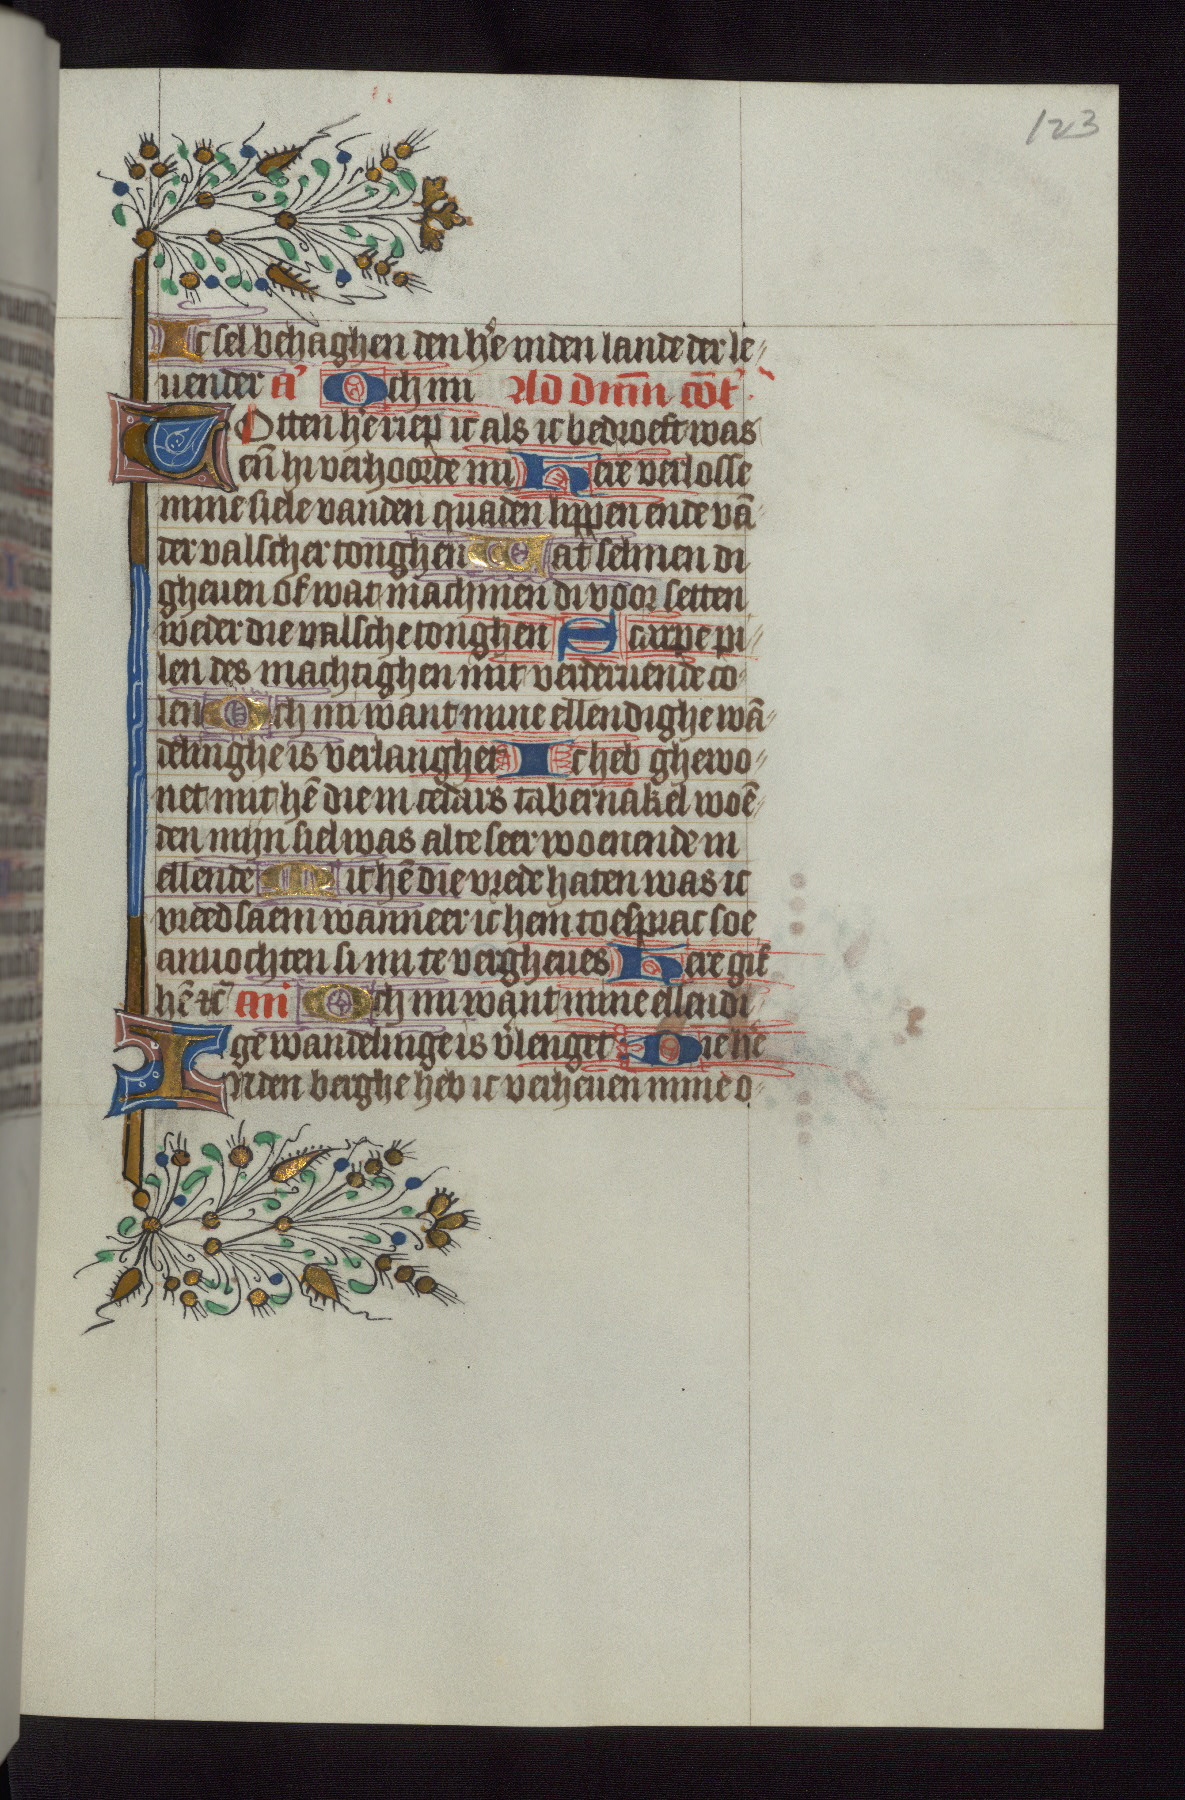 123
Ic sel behaghen den hr̄e inden lande der le⸗
uender a͛ Och mi Ad dn̄m cōt͛
TOtten hēre riep ic als ic bedroeft was
eñ hi verhoorde mi Here verlosse
mine siele vanden quaden lippen ende vā
der valscher tonghen Wat selmen di
gheuen of wat machmen di voor setten
weder die valsche tonghen Scarpe pi⸗
len des machtighen mit verderuende co⸗
len Och mi want mine ellendighe wā⸗
delinghe is verlanghet Ic heb ghewo⸗
net mit hē die in cedars tabernakel woē⸗
den mijn siel was alte seer woenende in
ellende Mit hē die vrede haten was ic
vreedsaem wanneer ic hem toesprac soe
anuochten si mi te vergheues Here gif
hē ⁊c̄ an͛ Och mi want mine ellendi⸗
ge wandelinge is v͛lenget Die hē
INden berghe heb ic verheuen mine o⸗